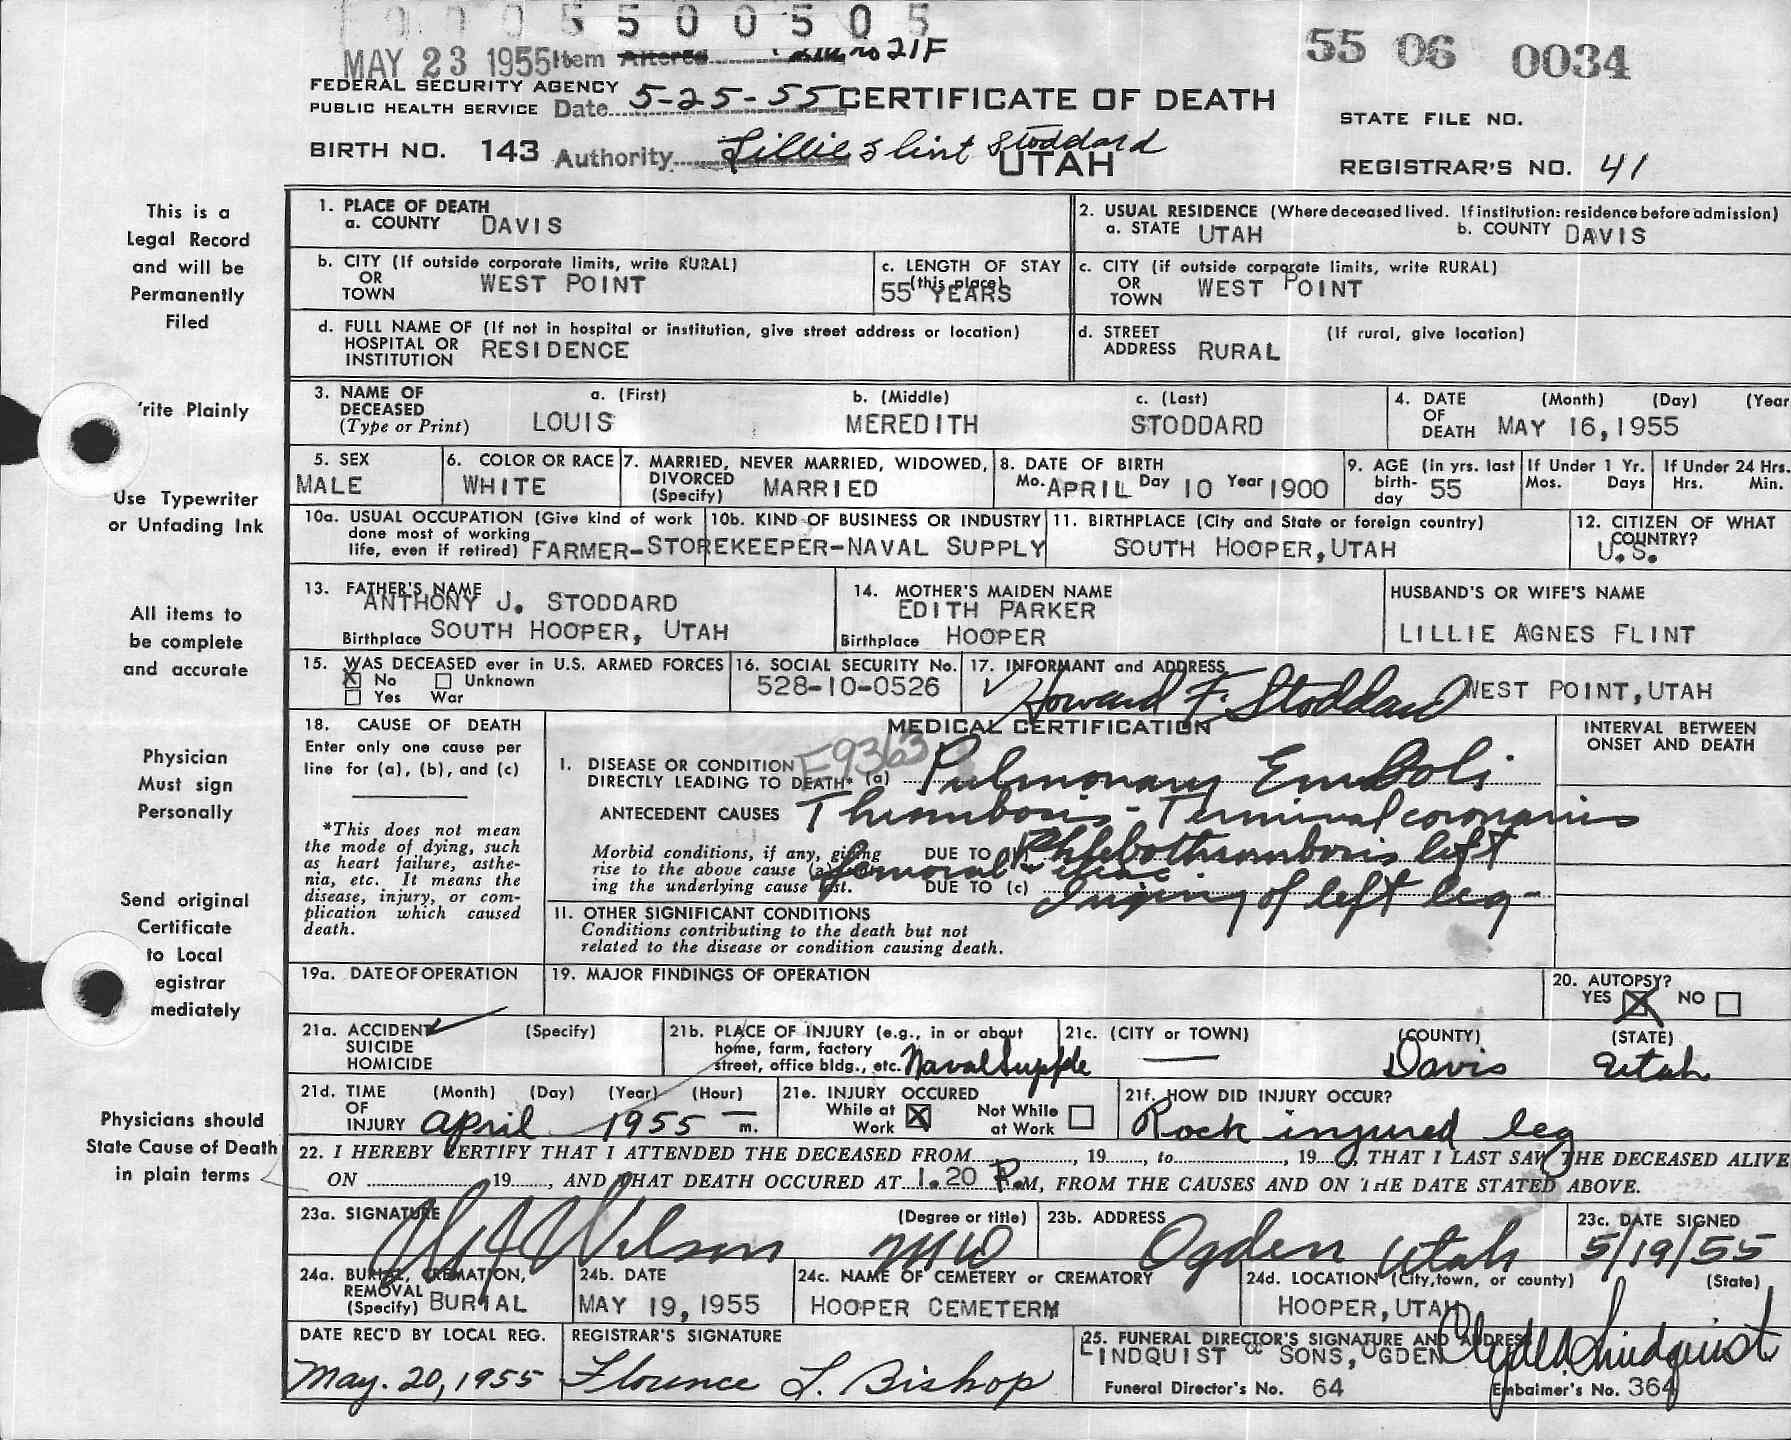 5 5 0 0 5 0 5
MAY 23 1955 Item Altered no 21F
55 06 0034
FEDERAL SECURITY AGENCY
PUBLIC HEALTH SERVICE Date 5-25-55 CERTIFICATE OF DEATH
STATE FILE NO.
BIRTH NO. 143 Authority Lillie Flint Stoddard
UTAH
REGISTRAR'S NO. 41
This is a
Legal Record
and will be
Permanently
Filed
rite Plainly
Use Typewriter
or Unfading Ink
All items to
be complete
and accurate
Physician
Must sign
Personally
Send original
Certificate
to Local
egistrar
mediately
Physicians should
State Cause of Death
in plain terms
1. PLACE OF DEATH
a. COUNTY DAVIS
2. USUAL RESIDENCE (Where deceased lived. If institution: residence before admission)
a. STATE UTAH b. COUNTY DAVIS
b. CITY (If outside corporate limits, write RURAL)
OR
TOWN WEST POINT
c. LENGTH OF STAY
(this place)
55 YEARS
c. CITY (if outside corporate limits, write RURAL)
OR
TOWN WEST POINT
d. FULL NAME OF (If not in hospital or institution, give street address or location)
HOSPITAL OR
INSTITUTION RESIDENCE
d. STREET (If rural, give location)
ADDRESS RURAL
3. NAME OF a. (First) b. (Middle) c. (Last)
DECEASED
(Type or Print) LOUIS MEREDITH STODDARD
4. DATE (Month) (Day) (Year
OF
DEATH MAY 16, 1955
5. SEX
MALE
6. COLOR OR RACE
WHITE
7. MARRIED, NEVER MARRIED, WIDOWED,
DIVORCED
(Specify) MARRIED
8. DATE OF BIRTH
Mo. APRIL Day 10 Year 1900
9. AGE (in yrs. last
birth-
day 55
If Under 1 Yr.
Mos. Days
If Under 24 Hrs.
Hrs. Min.
10a. USUAL OCCUPATION (Give kind of work
done most of working
life, even if retired) FARMER-STOREKEEPER-NAVAL SUPPLY
10b. KIND OF BUSINESS OR INDUSTRY
11. BIRTHPLACE (City and State or foreign country)
SOUTH HOOPER, UTAH
12. CITIZEN OF WHAT
COUNTRY?
U.S.
13. FATHER'S NAME
ANTHONY J. STODDARD
Birthplace SOUTH HOOPER, UTAH
14. MOTHER'S MAIDEN NAME
EDITH PARKER
Birthplace HOOPER
HUSBAND'S OR WIFE'S NAME
LILLIE AGNES FLINT
15. WAS DECEASED ever in U.S. ARMED FORCES
X No Unknown
Yes War
16. SOCIAL SECURITY No.
528-10-0526
17. INFORMANT and ADDRESS
Howard F. Stoddard WEST POINT, UTAH
18. CAUSE OF DEATH
Enter only one cause per
line for (a), (b), and (c)
*This does not mean
the mode of dying, such
as heart failure, asthe-
nia, etc. It means the
disease, injury, or com-
plication which caused
death.
MEDICAL CERTIFICATION
INTERVAL BETWEEN
ONSET AND DEATH
E9363
I. DISEASE OR CONDITION
DIRECTLY LEADING TO DEATH* (a) Pulmonary Emboli
ANTECEDENT CAUSES Thrombosis - Terminal coronaries
Morbid conditions, if any, giving DUE TO Phlebothrombosis left
rise to the above cause (a) femoral
ing the underlying cause last. DUE TO (c) Injury of left leg -
II. OTHER SIGNIFICANT CONDITIONS
Conditions contributing to the death but not
related to the disease or condition causing death.
19a. DATE OF OPERATION
19. MAJOR FINDINGS OF OPERATION
20. AUTOPSY?
YES X NO
21a. ACCIDENT (Specify)
SUICIDE
HOMICIDE
21b. PLACE OF INJURY (e.g., in or about
home, farm, factory
street, office bldg., etc. Naval Supple
21c. (CITY or TOWN) (COUNTY) (STATE)
— Davis Utah
21d. TIME (Month) (Day) (Year) (Hour)
OF
INJURY April 1955 — m.
21e. INJURY OCCURED
While at X Not While
Work at Work
21f. HOW DID INJURY OCCUR?
Rock injured leg
22. I HEREBY CERTIFY THAT I ATTENDED THE DECEASED FROM, 19, to, 19, THAT I LAST SAW THE DECEASED ALIVE
ON 19, AND THAT DEATH OCCURED AT 1.20 P.M, FROM THE CAUSES AND ON THE DATE STATED ABOVE.
23a. SIGNATURE (Degree or title)
Wilson MD
23b. ADDRESS
Ogden Utah
23c. DATE SIGNED
5/19/55
24a. BURIAL, CREMATION,
REMOVAL
(Specify) BURIAL
24b. DATE
MAY 19, 1955
24c. NAME OF CEMETERY or CREMATORY
HOOPER CEMETERM
24d. LOCATION (City, town, or county) (State)
HOOPER, UTAH
DATE REC'D BY LOCAL REG.
May. 20, 1955
REGISTRAR'S SIGNATURE
Florence L. Bishop
25. FUNERAL DIRECTOR'S SIGNATURE AND ADDRESS
LINDQUIST & SONS, OGDEN Clyde Lindquist
Funeral Director's No. 64 Embalmer's No. 364